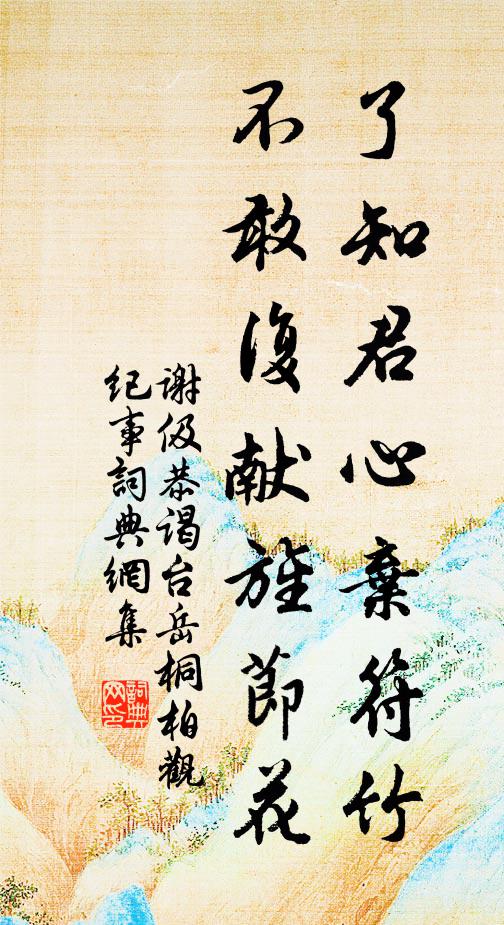 了知君心棄符竹
不敢復献旌節花
谢伋恭谒台岳桐柏觀
纪事詞典網集
詞典
网印